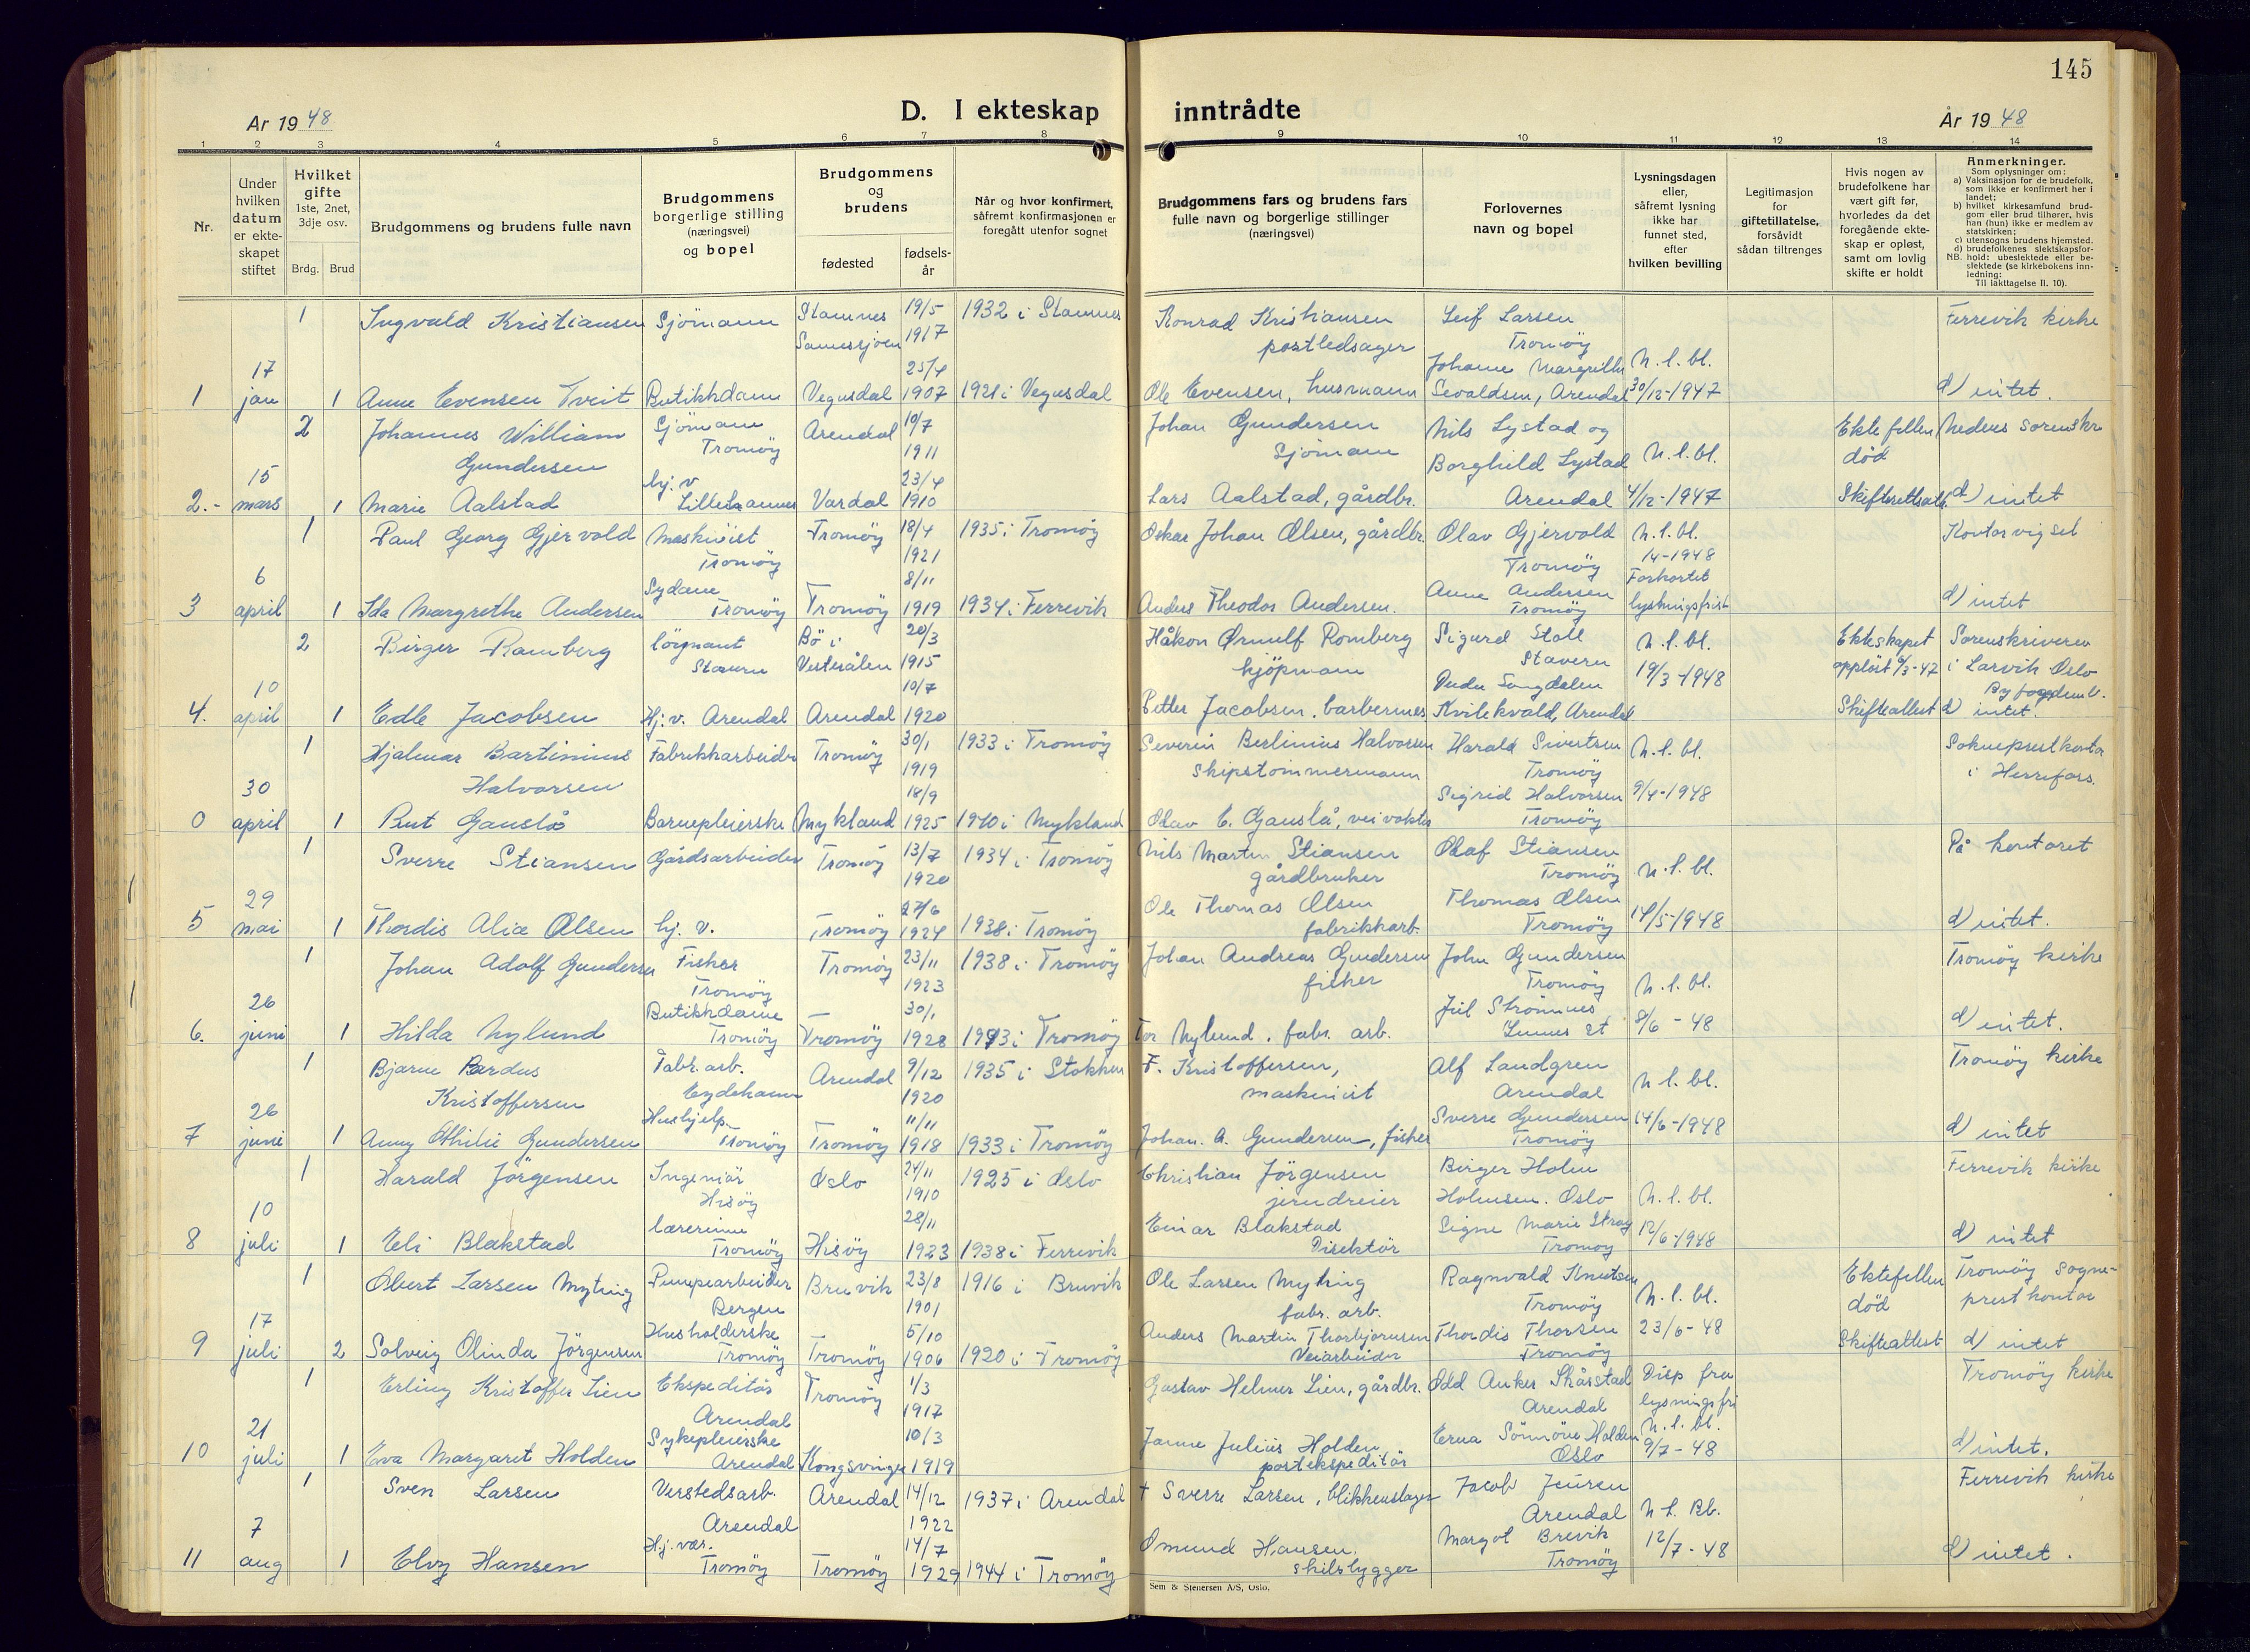 145
År 1948
D. I ekteskap inntrådte
År 1948
1 2 3 4 5 6 7 8 9 10 11 12 13 14
Nr.
Under hvilken datum er ekteskapet stiftet
Hvilket gifte 1ste, 2net, 3dje osv.
Brdg. Brud
Brudgommens og brudens fulle navn
Brudgommens borgerlige stilling (næringsvei) og bopel
Brudgommens og brudens
fødested
fødsels-år
Når og hvor konfirmert, såfremt konfirmasjonen er foregått utenfor sognet
Brudgommens fars og brudens fars fulle navn og borgerlige stillinger (næringsvei)
Forlovernes navn og bopel
Lysningsdagen eller, såfremt lysning ikke har funnet sted, efter hvilken bevilling
Legitimasjon for giftetillatelse, forsåvidt sådan tiltrenges
Hvis nogen av brudefolkene har vært gift før, hvorledes da det foregående ekteskap er opløst, samt om lovlig skifte er holdt
Anmerkninger.
Som oplysninger om:
a) Vaksinasjon for de brudefolk, som ikke er konfirmert her i landet;
b) hvilket kirkesamfund brudgom eller brud tilhører, hvis han (hun) ikke er medlem av statskirken;
c) utensogns brudens hjemsted.
d) brudefolkenes slektskapsforhold: ubeslektede eller beslektede (se kirkebokens innledning:
NB.
Til iakttagelse II. 10).
1 Ingvald Kristiansen Sjömann Stamnes 19/5 1932 i Stamnes Konrad Kristiansen Leif Larsen Ferrevik kirke
1917 postledsager Tromöy
17 25/4 Johanne N.l.bl.
1 jan 1 Anne Evensen Tveit Butikkdame Vegusdal 1907 1921 i Vegusdal Ole Evensen, husmann Sevaldsen, Arendal 30/12-1947 d) intet.
2 Johannes William Sjömann Arendal 10/7 Johan Gundersen Nils Lystad og Ektefellen
Gundersen Tromöy 1911 Sjömann Borghild Lystad N.l.bl. död
15 hj.v. 23/4
2.- mars 1 Marie Aalstad Vardal 1910 Lars Aalstad, gårdbr. Arendal 4/12-1947 d) intet
1 Paul Georg Gjervold Maskinist Tromöy 18/4 1935 i Tromöy Oskar Johan Olsen, gårdbr. Olav Gjervold N.l.bl. Kontorvigsel
Tromöy 1921 Tromöy 1/4-1948
6 Sydame 8/11 Anne Andersen Forkortet
3 april 1 Ida Margrethe Andersen Tromöy Tromöy 1919 1934 i Ferrevik Anders Theodor Andersen. Tromöy lysningsfrist d) intet
2 Birger Ramberg löytnant Bö i 20/3 Håkon Ørnulf Romberg Sigurd Stall N.l.bl. Ekteskapet Sorenskriveren
Stavern Vesterålen 1915 kjöpmann Stavern 19/3-1948 opplöst i Larvik Oslo
10 10/7
4. april 1 Edle Jacobsen Hj.v. Arendal Arendal 1920 Petter Jacobsen, barbermes. Arendal Skifteattest d) intet.
1 Hjalmar Bartinius Fabrikkarbeider Tromöy 30/1 1933 i Tromöy Severin Berlinius Halvorsen Harald Sivertsen N.l.bl. Sokneprestkontor
Halvorsen 1919 skipstömmermann Tromöy i Herrefoss.
30 18/9 Sigrid Halvorsen 9/4-1948
0 april 1 Rut Gauslå Barnepleierske Mykland 1925 1940 i Mykland Olav E. Gauslå, veivokter Tromöy
1 Sverre Stiansen Gårdsarbeider Tromöy 13/7 1934 i Tromöy Nils Martin Stiansen Olaf Stiansen På kontoret
1920 gårdbruker Tromöy N.l.bl.
29 27/6 Ole Thomas Olsen Thomas Olsen
5 mai 1 Thordis Alice Olsen hj.v. Tromöy 1924 1938 i Tromöy fabrikkarb. Tromöy 14/5-1948 d) intet.
1 Johan Adolf Gundersen Fisker Tromöy 23/11 1938 i Tromöy Johan Andreas Gundersen John Gundersen Tromöy kirke
Tromöy 1923 fisker Tromöy N.l.bl.
26 Butikkdame 30/1 Strömnes
6. juni 1 Hilda Nylund Tromöy Tromöy 1928 1943 i Tromöy Tor Nylund, fabr. arb. 8/6 - 48 d) intet.
1 Bjarne Pardus Fabr. arb. Arendal 9/12 1935 i Stokken F. Kristoffersen, Alf Landgren Tromöy kirke
Kristoffersen Eydehamn 1920 maskinist Arendal N.l.bl.
26 Hushjelp. 11/11 Sverre Gundersen 14/6-1948
7 juni 1 Anny Othilie Gundersen Tromöy Tromöy 1918 1933 i Tromöy Johan. A. Gundersen, fisker Tromöy d) intet
1 Harald Jörgensen Ingeniör Oslo 24/11 1925 i Oslo Christian Jörgensen Birger Holm Ferrevik kirke
Hisöy 1910 jerndreier Holmsen. Oslo N.l.bl.
10 lærerinne 28/11 Einar Blakstad Signe Marie Stray 12/6-1948
8 juli 1 Eli Blakstad Tromöy Hisöy 1923 1938 i Ferrevik Direktör Tromoy d) intet
1 Olbert Larsen Myting Pumpearbeider Bruvik 23/8 1916 i Bruvik Ole Larsen Myting Ragnvald Knutsen Ektefellen Tromöy Sogne-
Bergen 1901 fabr. arb. Tromöy N.l.bl. död prestkontor
17 Husholderske 5/10 Anders Martin Thorbjörnsen Thordis Thorsen 23/6-48
9 juli 2 Solveig Olinda Jörgensen Tromöy Tromöy 1906 1920 i Tromöy Veiarbeider Tromöy Skifteattest d) intet
1 Erling Kristoffer Lien Ekspeditör Tromöy 1/3 Gustav Helmer Lien, gårdbr. Odd Anker Skårstad Disp fra Tromöy kirke
Arendal 1917 Arendal lysningsfri
21 Sykepleierske 10/3 Janne Julius Holden Erna Sönnöve Holden N.l.bl.
10 juli 1 Eva Margaret Holden Arendal Kongsvinger 1919 postekspeditör Oslo 9/7-48 d) intet.
1 Sven Larsen Verstedsarb. Arendal 14/12 1937 i Arendal + Sverre Larsen, blikkenslager Jacob Ferrevik kirke
Arendal 1922 Arendal
7 Hj.vær. 14/7 Omund Hansen Margot Brevik 12/7-48
11 aug 1 Elvy Hansen Tromöy Tromöy 1929 1944 i Tromöy Tromöy d) intet.
Sem & Stenersen A/S, Oslo.